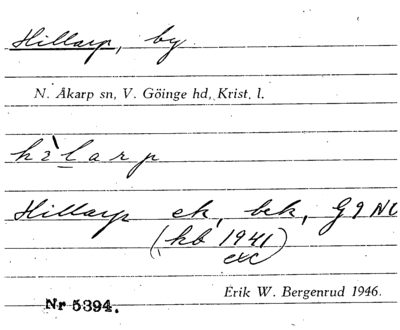 Hillarp, by
N. Åkarp sn, V. Göinge hd, Krist. l.
hìlarp
Hillarp ek, bek, G 9 NV
(kb 1941)
exc
Erik W. Bergenrud 1946.
Nr 5394.